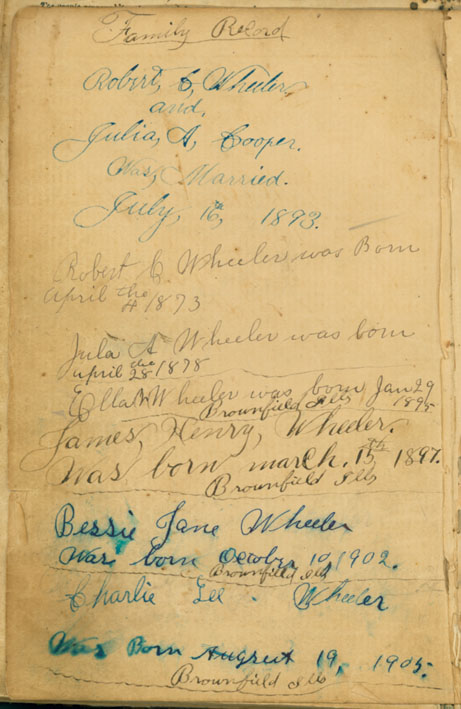 Family Record
Robert, C, Wheeler,
and,
Julia, A, Cooper.
Was, Married.
July, 16, 1893.
Robert C. Wheeler was Born
April the 4 1873
Jula A Wheeler was born
april the 28 1878
Ella Wheeler was born Jan 29
1895
Brownfield Ills
James, Henry, Wheeler.
Was born march. 15th 1897.
Brownfield Ills
Bessie Jane Wheeler
Was born October, 10, 1902.
Brownfield Ills
Charlie Lee Wheeler
Was Born August 19, 1905.
Brownfield Ills